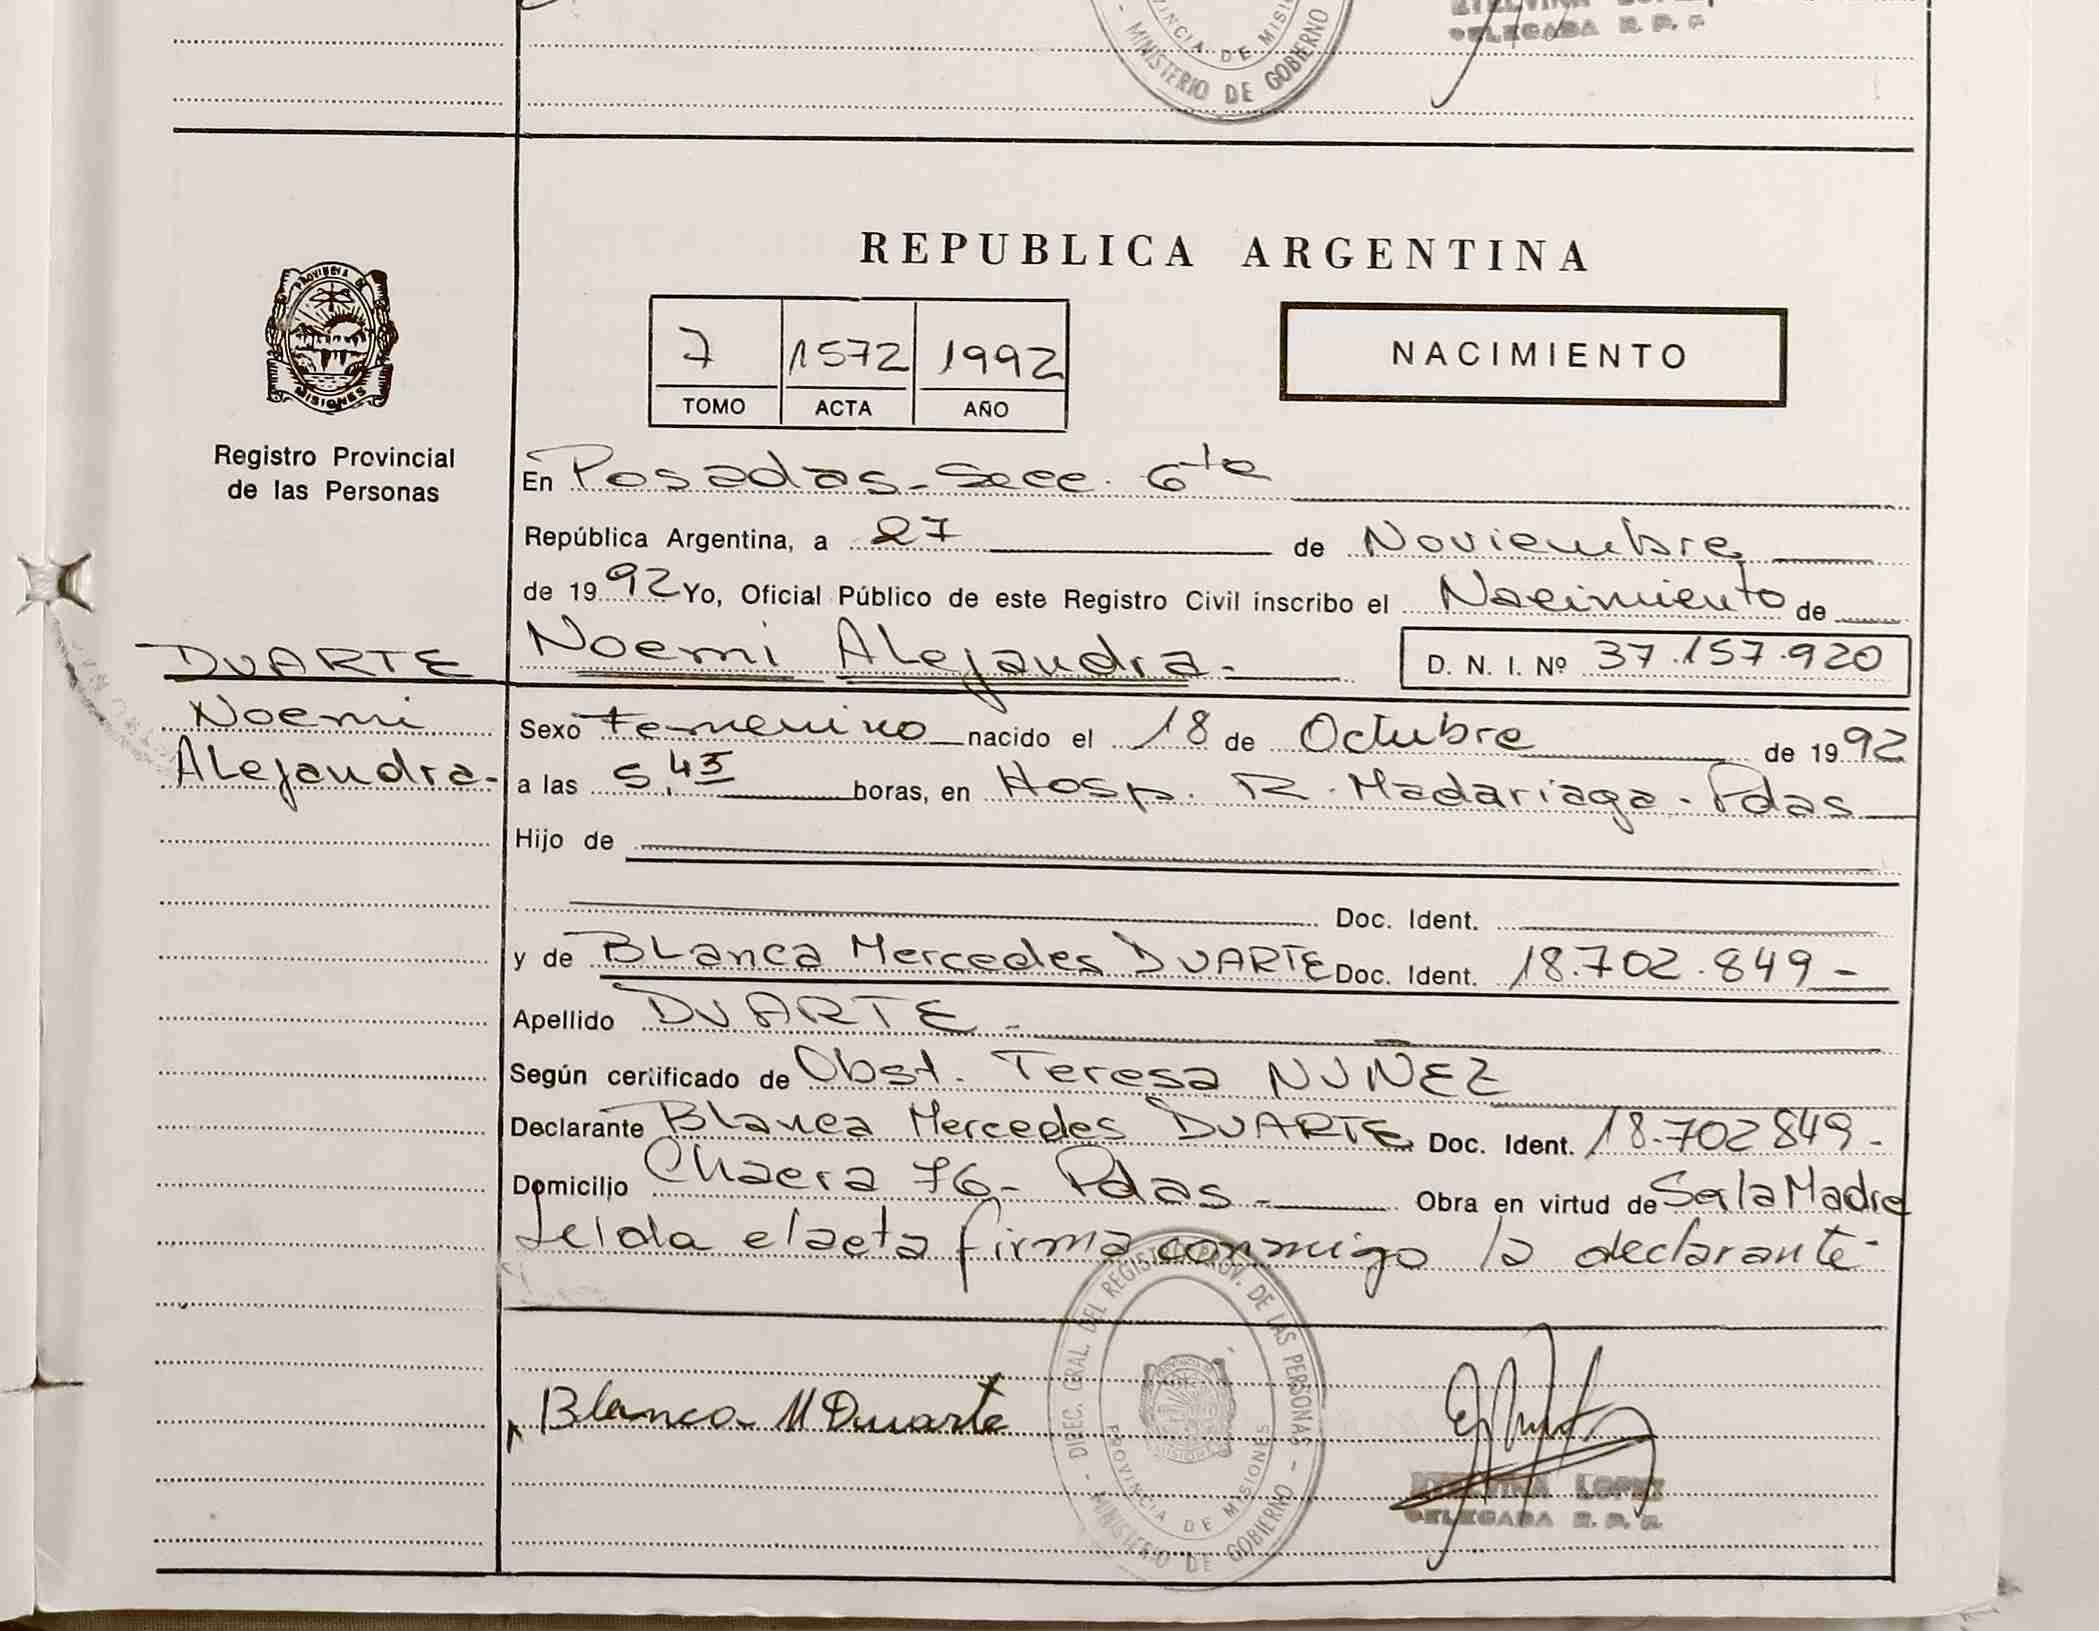 PROVINCIA DE MISIONES
- MINISTERIO DE GOBIERNO
DELEGADA R. P. P.
REPUBLICA ARGENTINA
PROVINCIA DE
MISIONES
Registro Provincial
de las Personas
7 1572 1992
TOMO ACTA AÑO
NACIMIENTO
En Posadas - Secc. 6ta
República Argentina, a 27 de Noviembre
de 1992 Yo, Oficial Público de este Registro Civil inscribo el Nacimiento de
Noemi Alejandra.- D. N. I. Nº 37.157.920
DUARTE
Noemi
Alejandra-
Sexo Femenino nacido el 18 de Octubre de 1992
a las 5,45 boras, en Hosp. R. Madariaga - Pdas
Hijo de
Doc. Ident.
y de Blanca Mercedes DUARTE Doc. Ident. 18.702.849 -
Apellido DUARTE -
Según certificado de Obst. Teresa NUÑEZ
Declarante Blanca Mercedes DUARTE Doc. Ident. 18.702849 -
Domicilio Chacra 76 - Pdas - Obra en virtud de Ser la Madre
Leida el acta firma conmigo la declarante -
Blanca M Duarte
- DIREC. GRAL. DEL REGISTRO PROV. DE LAS PERSONAS -
MINISTERIO DE GOBIERNO
PROVINCIA DE MISIONES
LOPEZ
DELEGADA R. P. P.